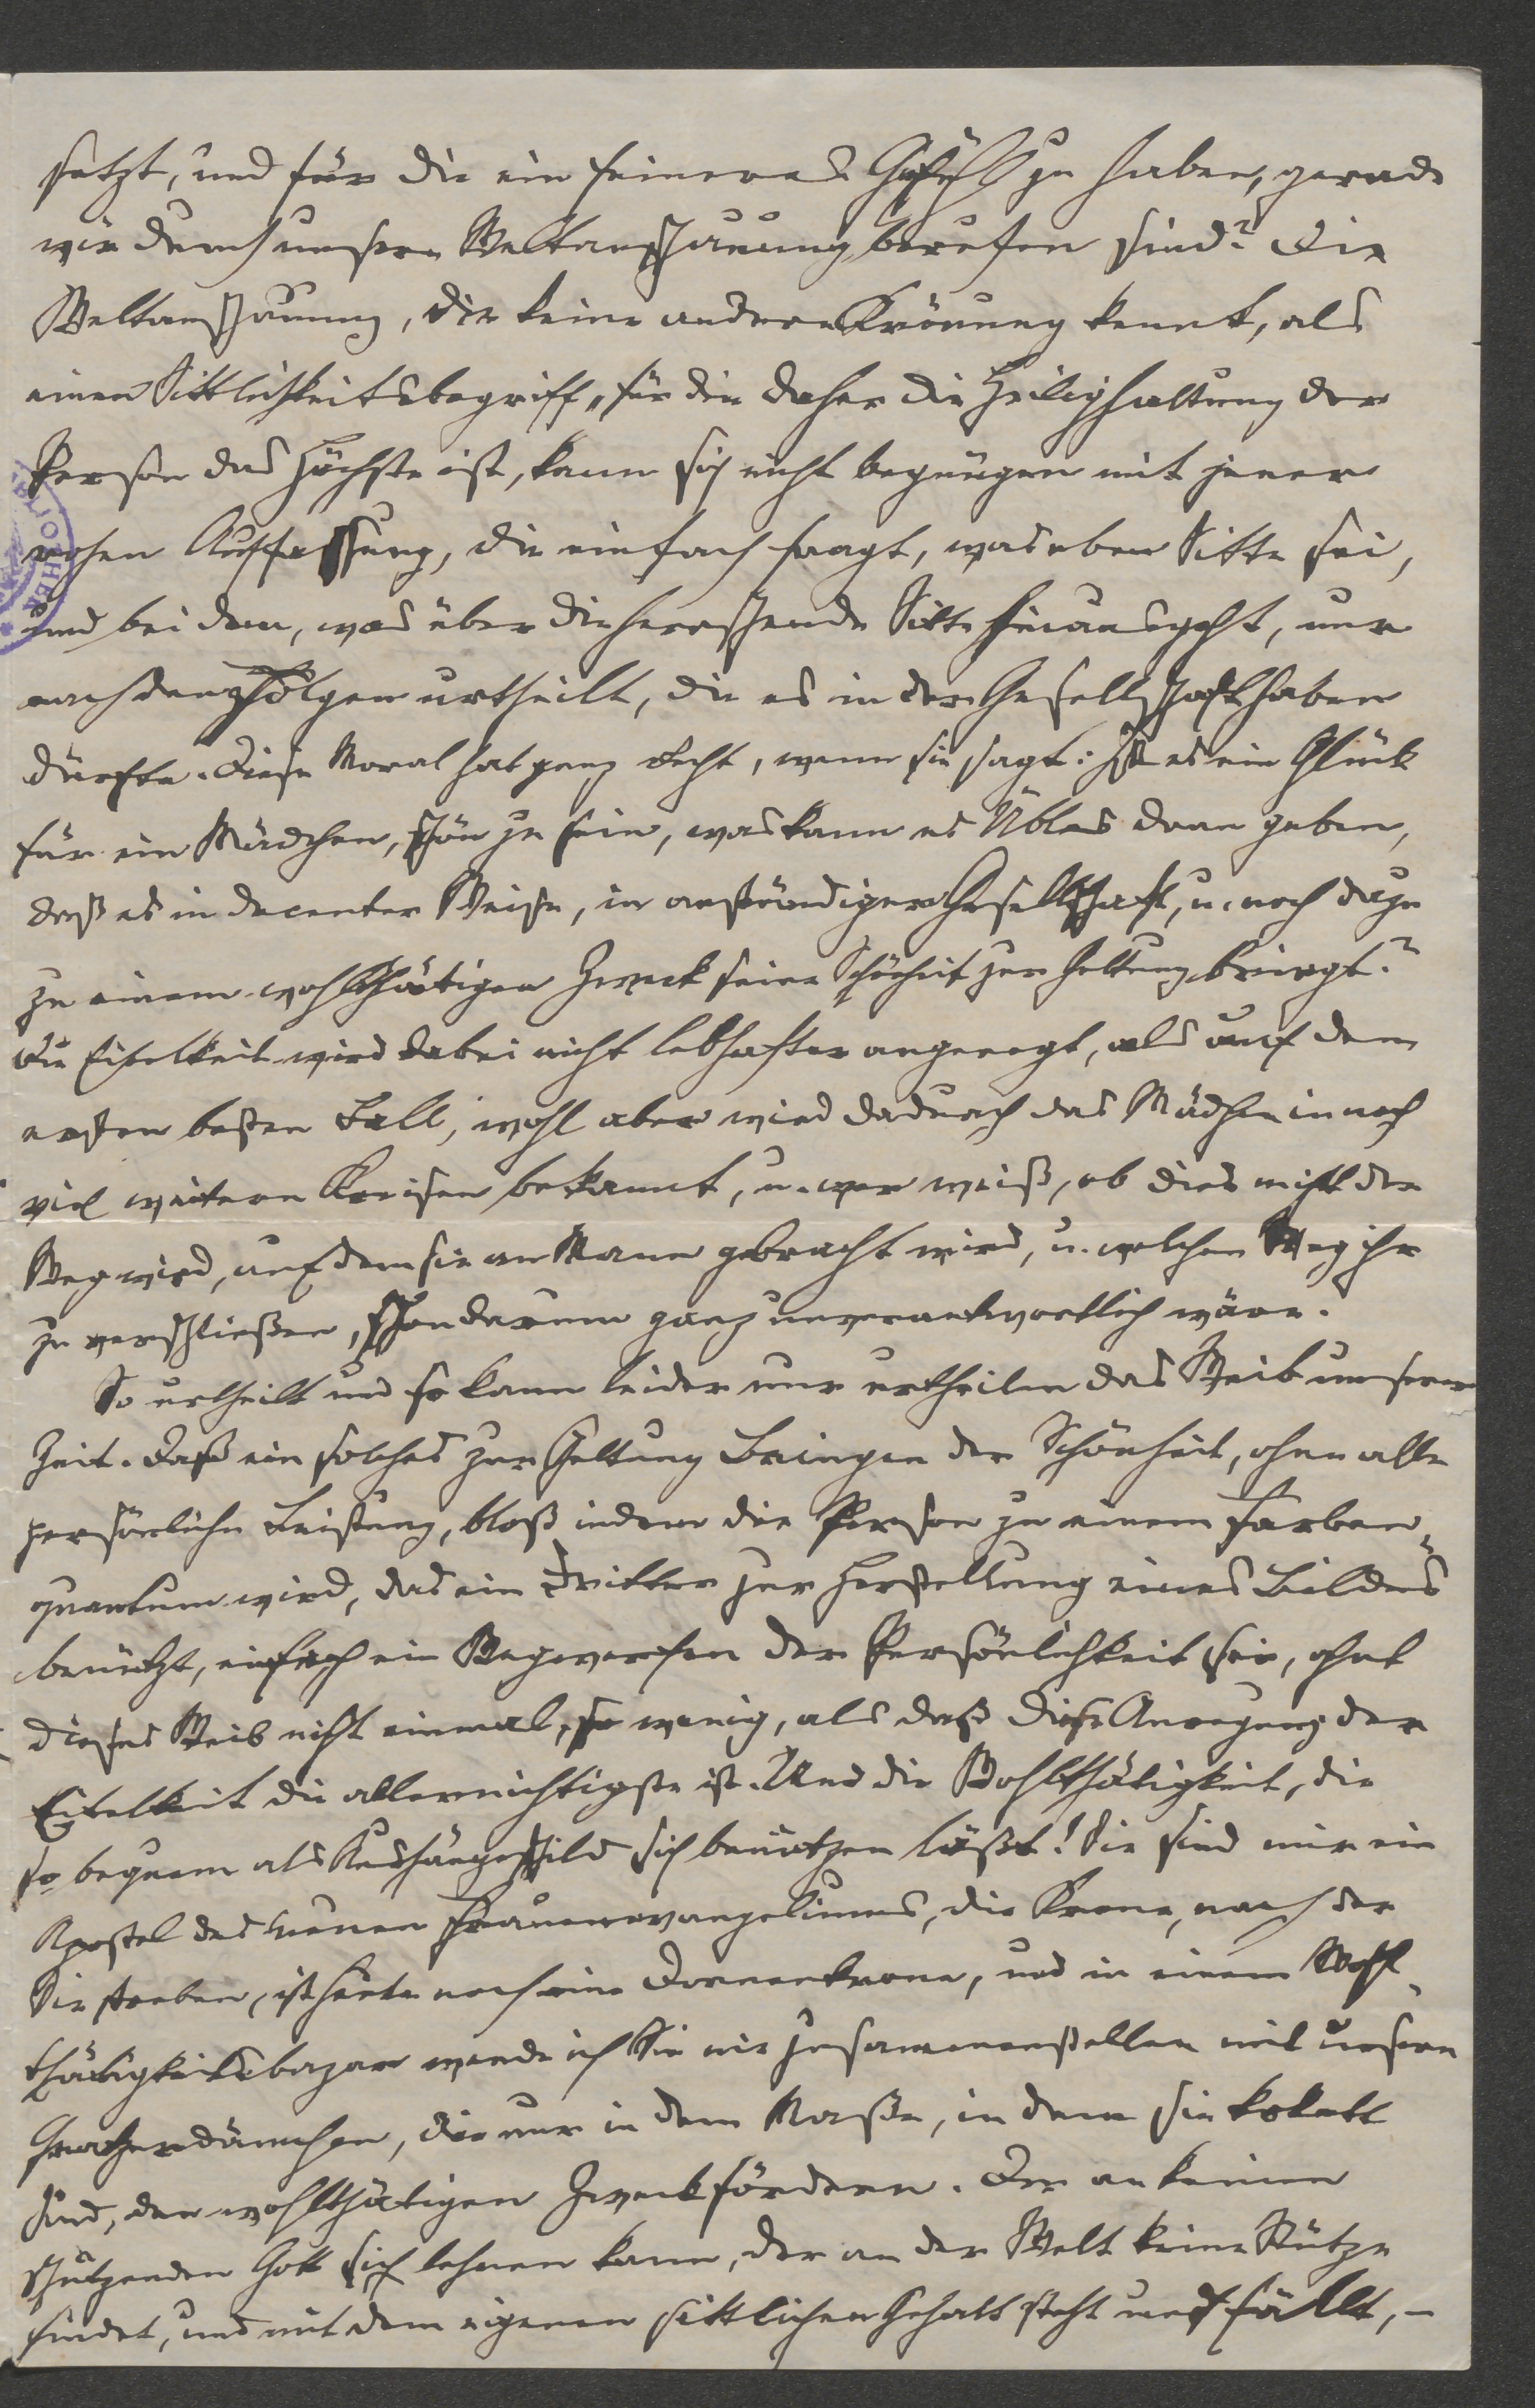 setzt, und für die ein feineres Gefühl zu haben, gerade
wir durch unsere Weltanschauung berufen sind? Die
Weltanschauung, die keine andere Krönung kennt, als
einen Sittlichkeitsbegriff, für die daher die Heilighaltung der
Person das Höchste ist, kann sich nicht begnügen mit jener
rohen Auffassung, die einfach fragt, was eben Sitte sei,
und bei dem, was über die herrschende Sitte hinausgeht, nur
nach den Folgen urtheilt, die es in der Gesellschaft haben
dürfte. Diese Moral hat ganz Recht, wenn sie sagt: Ist es ein Glück
für ein Mädchen, schön zu sein, was kann es Übles dran geben,
daß es in decenter Weise, in anständiger Gesellschaft, u. noch dazu
zu einem wohlthätigen Zweck seine Schönheit zur Geltung bringt?
Die Eitelkeit wird dabei nicht lebhafter angeregt, als auf dem
ersten besten Ball, wohl aber wird dadurch das Mädchen in noch
viel weitern Kreisen bekannt, u. wer weiß, ob dies nicht der
Weg wird, auf dem sie an Mann gebracht wird, u. welchen Weg ihr
zu verschließen, schon darum ganz unverantwortlich wäre.
So urtheilt und so kann leider nur urtheilen das Weib unserer
Zeit. Daß ein solches zur Geltung Bringen der Schönheit, ohne alle
persönliche Leistung, bloß indem die Person zu einem Farben-
quantum wird, das ein Dritter zur Herstellung eines Bildes
benützt, einfach ein Wegwerfen der Persönlichkeit sei, ahnt
dieses Weib nicht einmal, so wenig, als daß diese Anregung der
Eitelkeit die allernichtigste ist. Und die Wohlthätigkeit, die
so bequem als Aushängeschild sich benützen läßt! Sie sind mir ein
Apostel des neuen Frauenevangeliums, die Krone, nach der
Sie streben, ist heute noch eine Dornenkrone, und in einem Wohl-
thätigkeitsbazar werde ich Sie nie zusammenstellen mit unsern
Grazerdämchen, die nur in dem Maße, in dem sie kokett
sind, den wohlthätigen Zweck fördern. Der an keinen
schützenden Gott sich lehnen kann, der an der Welt keine Stütze
findet, und mit dem eigenen sittlichen Gehalt steht und fällt, –